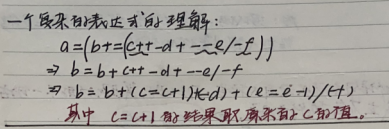 一个复杂的表达式的理解:
a=(b+=(c++-d+--e/-f))
⇒ b=b+c++-d+--e/-f
⇒ b=b+(c=c+1)+(-d)+(e=e-1)/(-f)
其中 c=c+1的结果取原来的c的值。